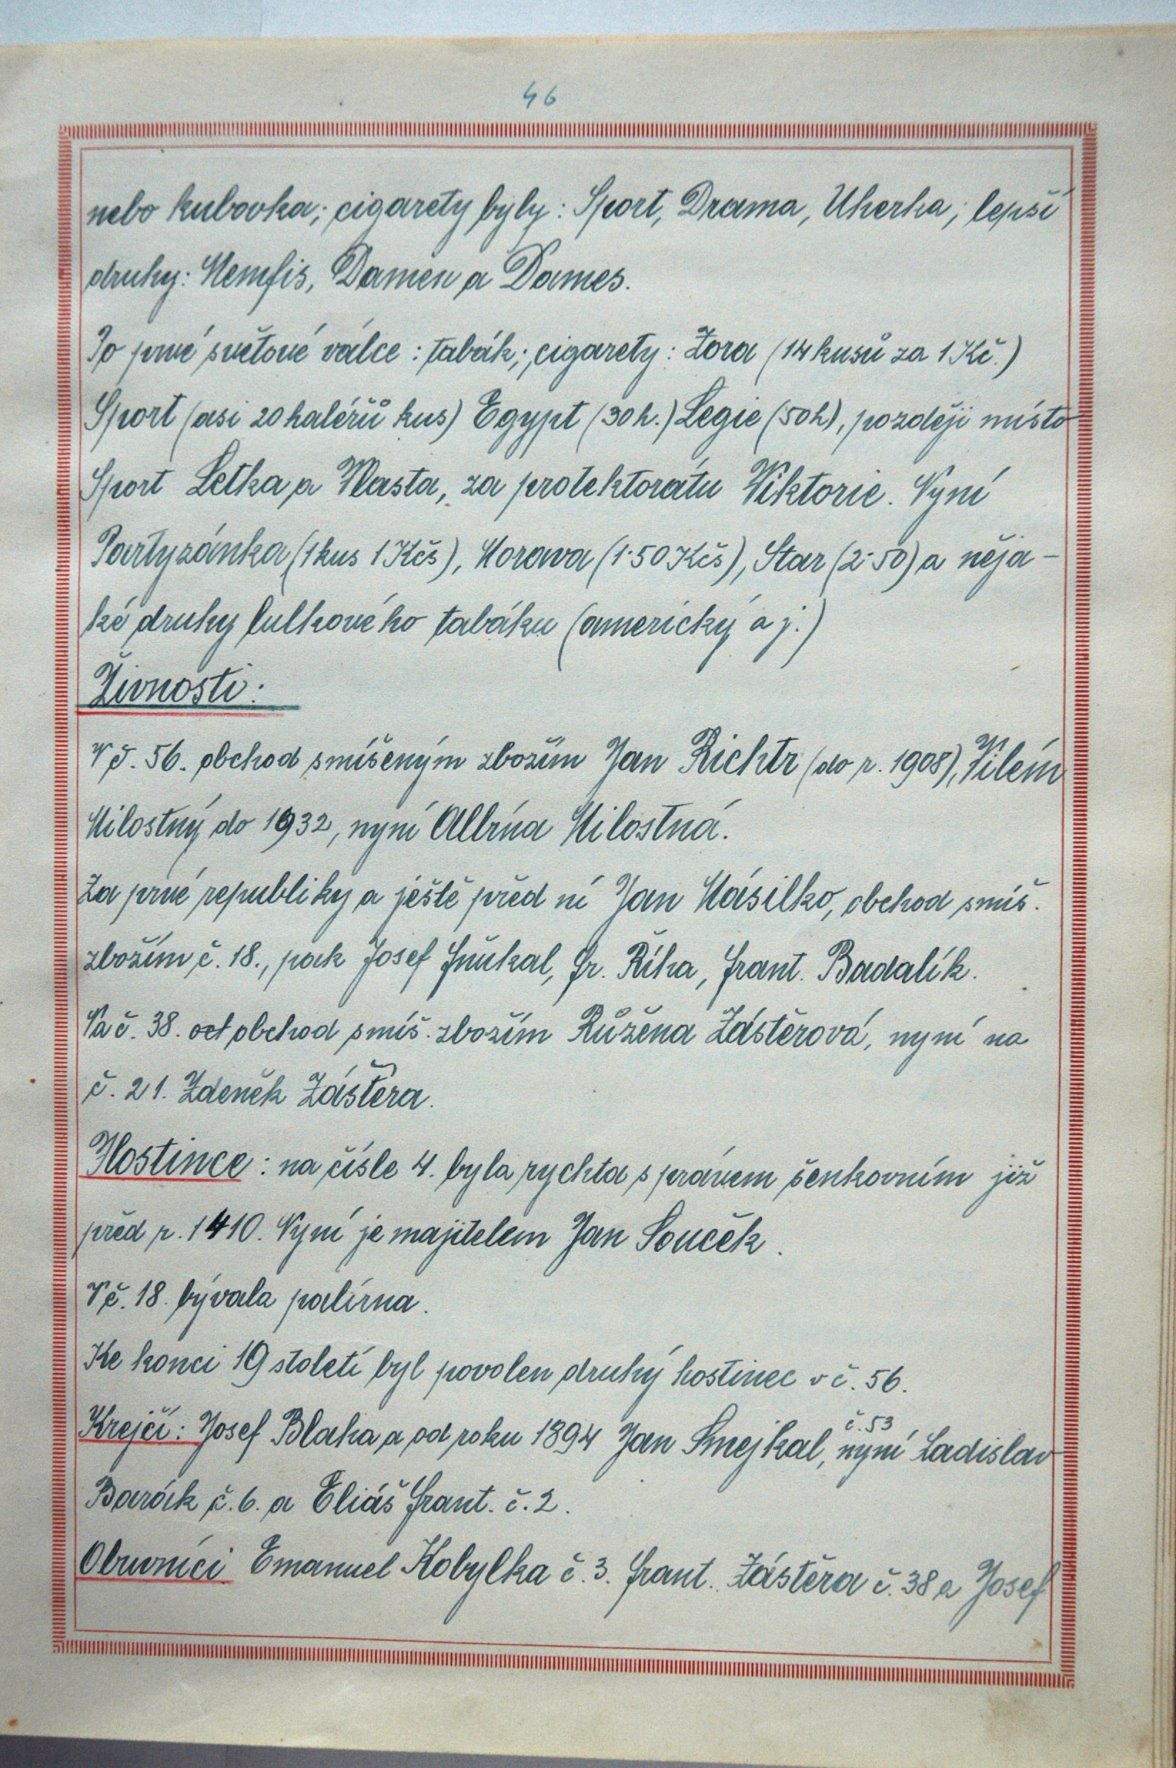 46
nebo kubovka; cigarety byly: Sport, Drama, Uherka; lepší
druhy: Memfis, Damen a Dames.
Po prvé světové válce: tabák; cigarety: Zora (14 kusů za 1 Kč.)
Sport (asi 20 haléřů kus) Egypt (30 h.) Legie (50 h), později místo
Sport Letka a Vlasta, za protektorátu Viktorie. Nyní
Partyzánka (1 kus 1 Kčs), Morava (1·50 Kčs), Star (2·50) a něja-
ké druhy lulkového tabáku (americký a j.)
Živnosti:
V č. 56. obchod smíšeným zbožím Jan Richtr (do r. 1908), Vilém
Milostný do 1932, nyní Albína Milostná.
Za prvé republiky a ještě před ní Jan Másilko, obchod smíš.
zbožím č. 18., pak Josef Fňukal, Fr. Říha, Frant. Badalík.
Na č. 38. obchod smíš. zbožím Růžena Zástěrová, nyní na
č. 21. Zdeněk Zástěra.
Hostince: na čísle 4. byla rychta s právem šenkovním již
před r. 1410. Nyní je majitelem Jan Souček.
V č. 18. bývala palírna.
Ke konci 19 století byl povolen druhý hostinec v č. 56.
Krejčí: Josef Blaha a od roku 1894 Jan Smejkal, č. 53 nyní Ladislav
Barák č. 6. a Eliáš Frant. č. 2.
Obuvníci Emanuel Kobylka č. 3. Frant. Zástěra č. 38 a Josef